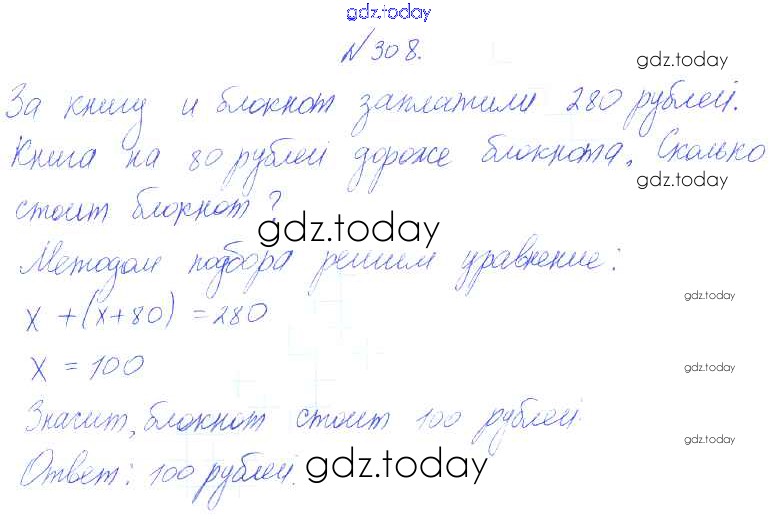 gdz.today
№308.
gdz.today
За книгу и блокнот заплатили 280 рублей.
Книга на 80 рублей дороже блокнота. Сколько
gdz.today
стоит блокнот?
gdz.today
Методом подбора решим уравнение:
gdz.today
x + (x+80) = 280
x = 100
gdz.today
Значит, блокнот стоит 100 рублей.
gdz.today
Ответ: 100 рублей.
gdz.today